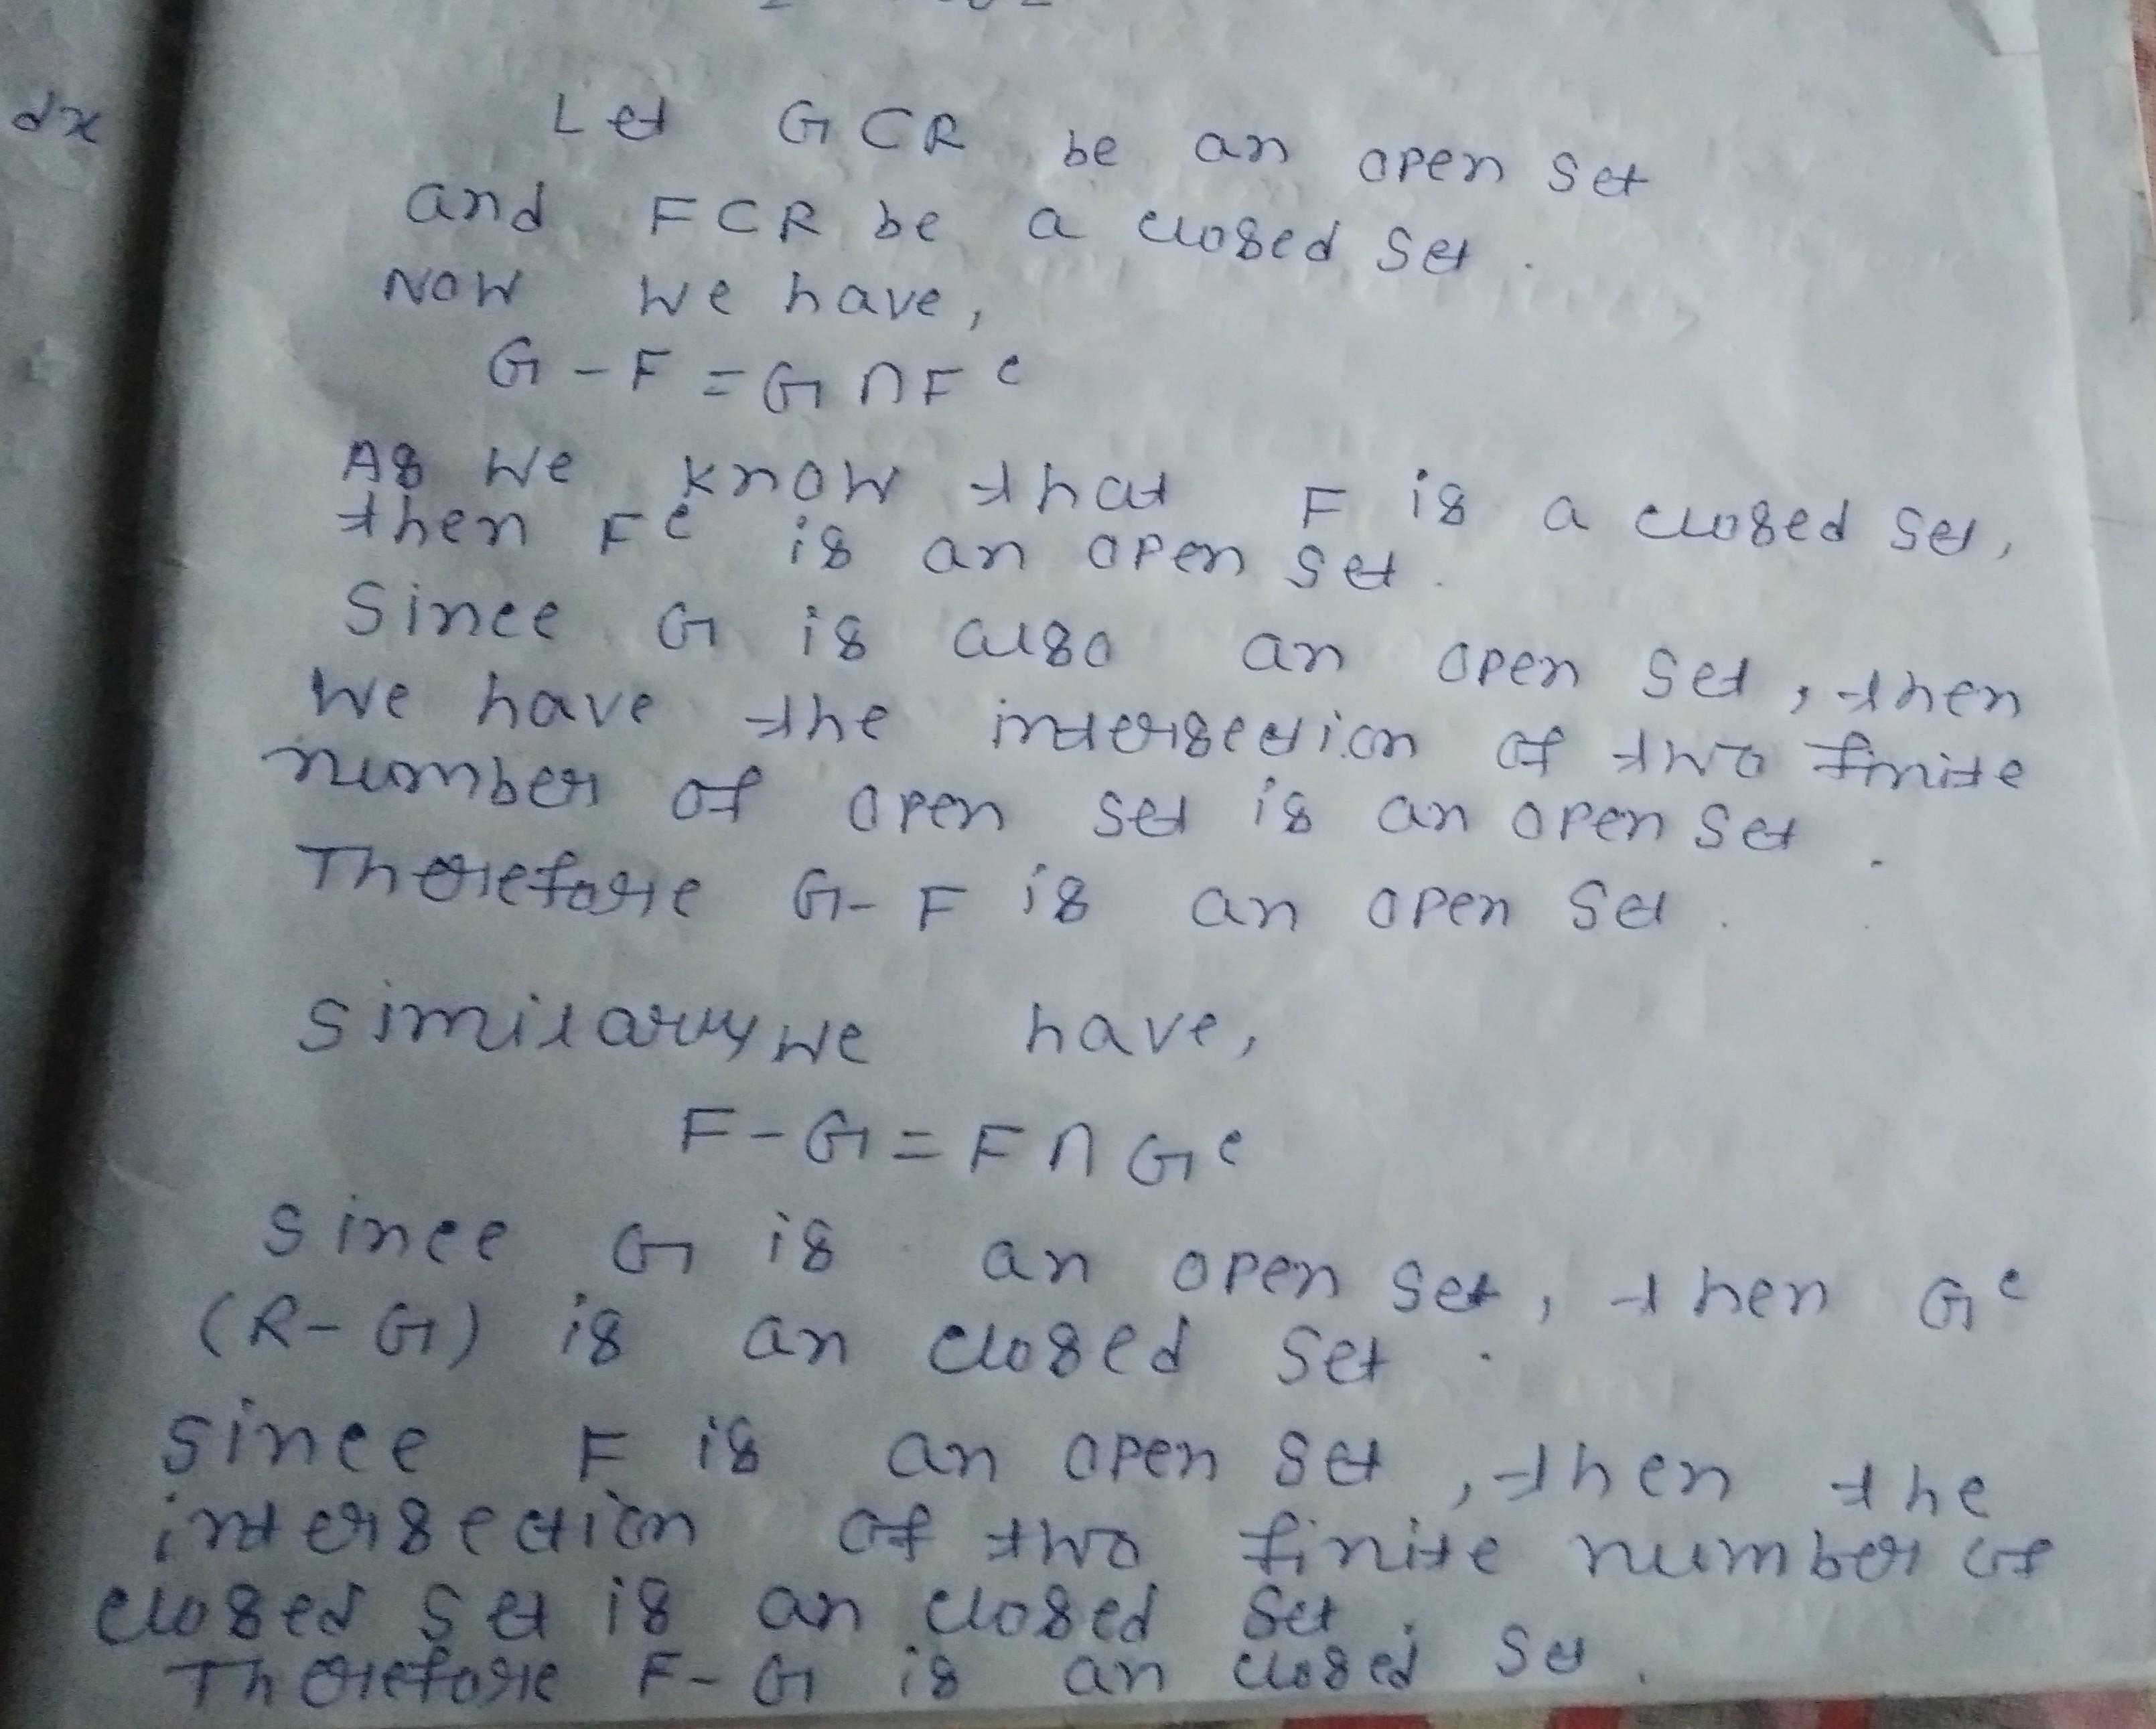 dx
Let G⊂R be an open set
and F⊂R be a closed set.
Now we have,
G - F = G ∩ F^c
As we know that F is a closed set,
then F^c is an open set.
Since G is also an open set, then
we have the intersection of two finite
number of open set is an open set.
Therefore G-F is an open set.
Similarly we have,
F - G = F ∩ G^c
Since G is an open set, then G^c
(R-G) is an closed set.
Since F is an open set, then the
intersection of two finite number of
closed set is an closed set.
Therefore F-G is an closed set.